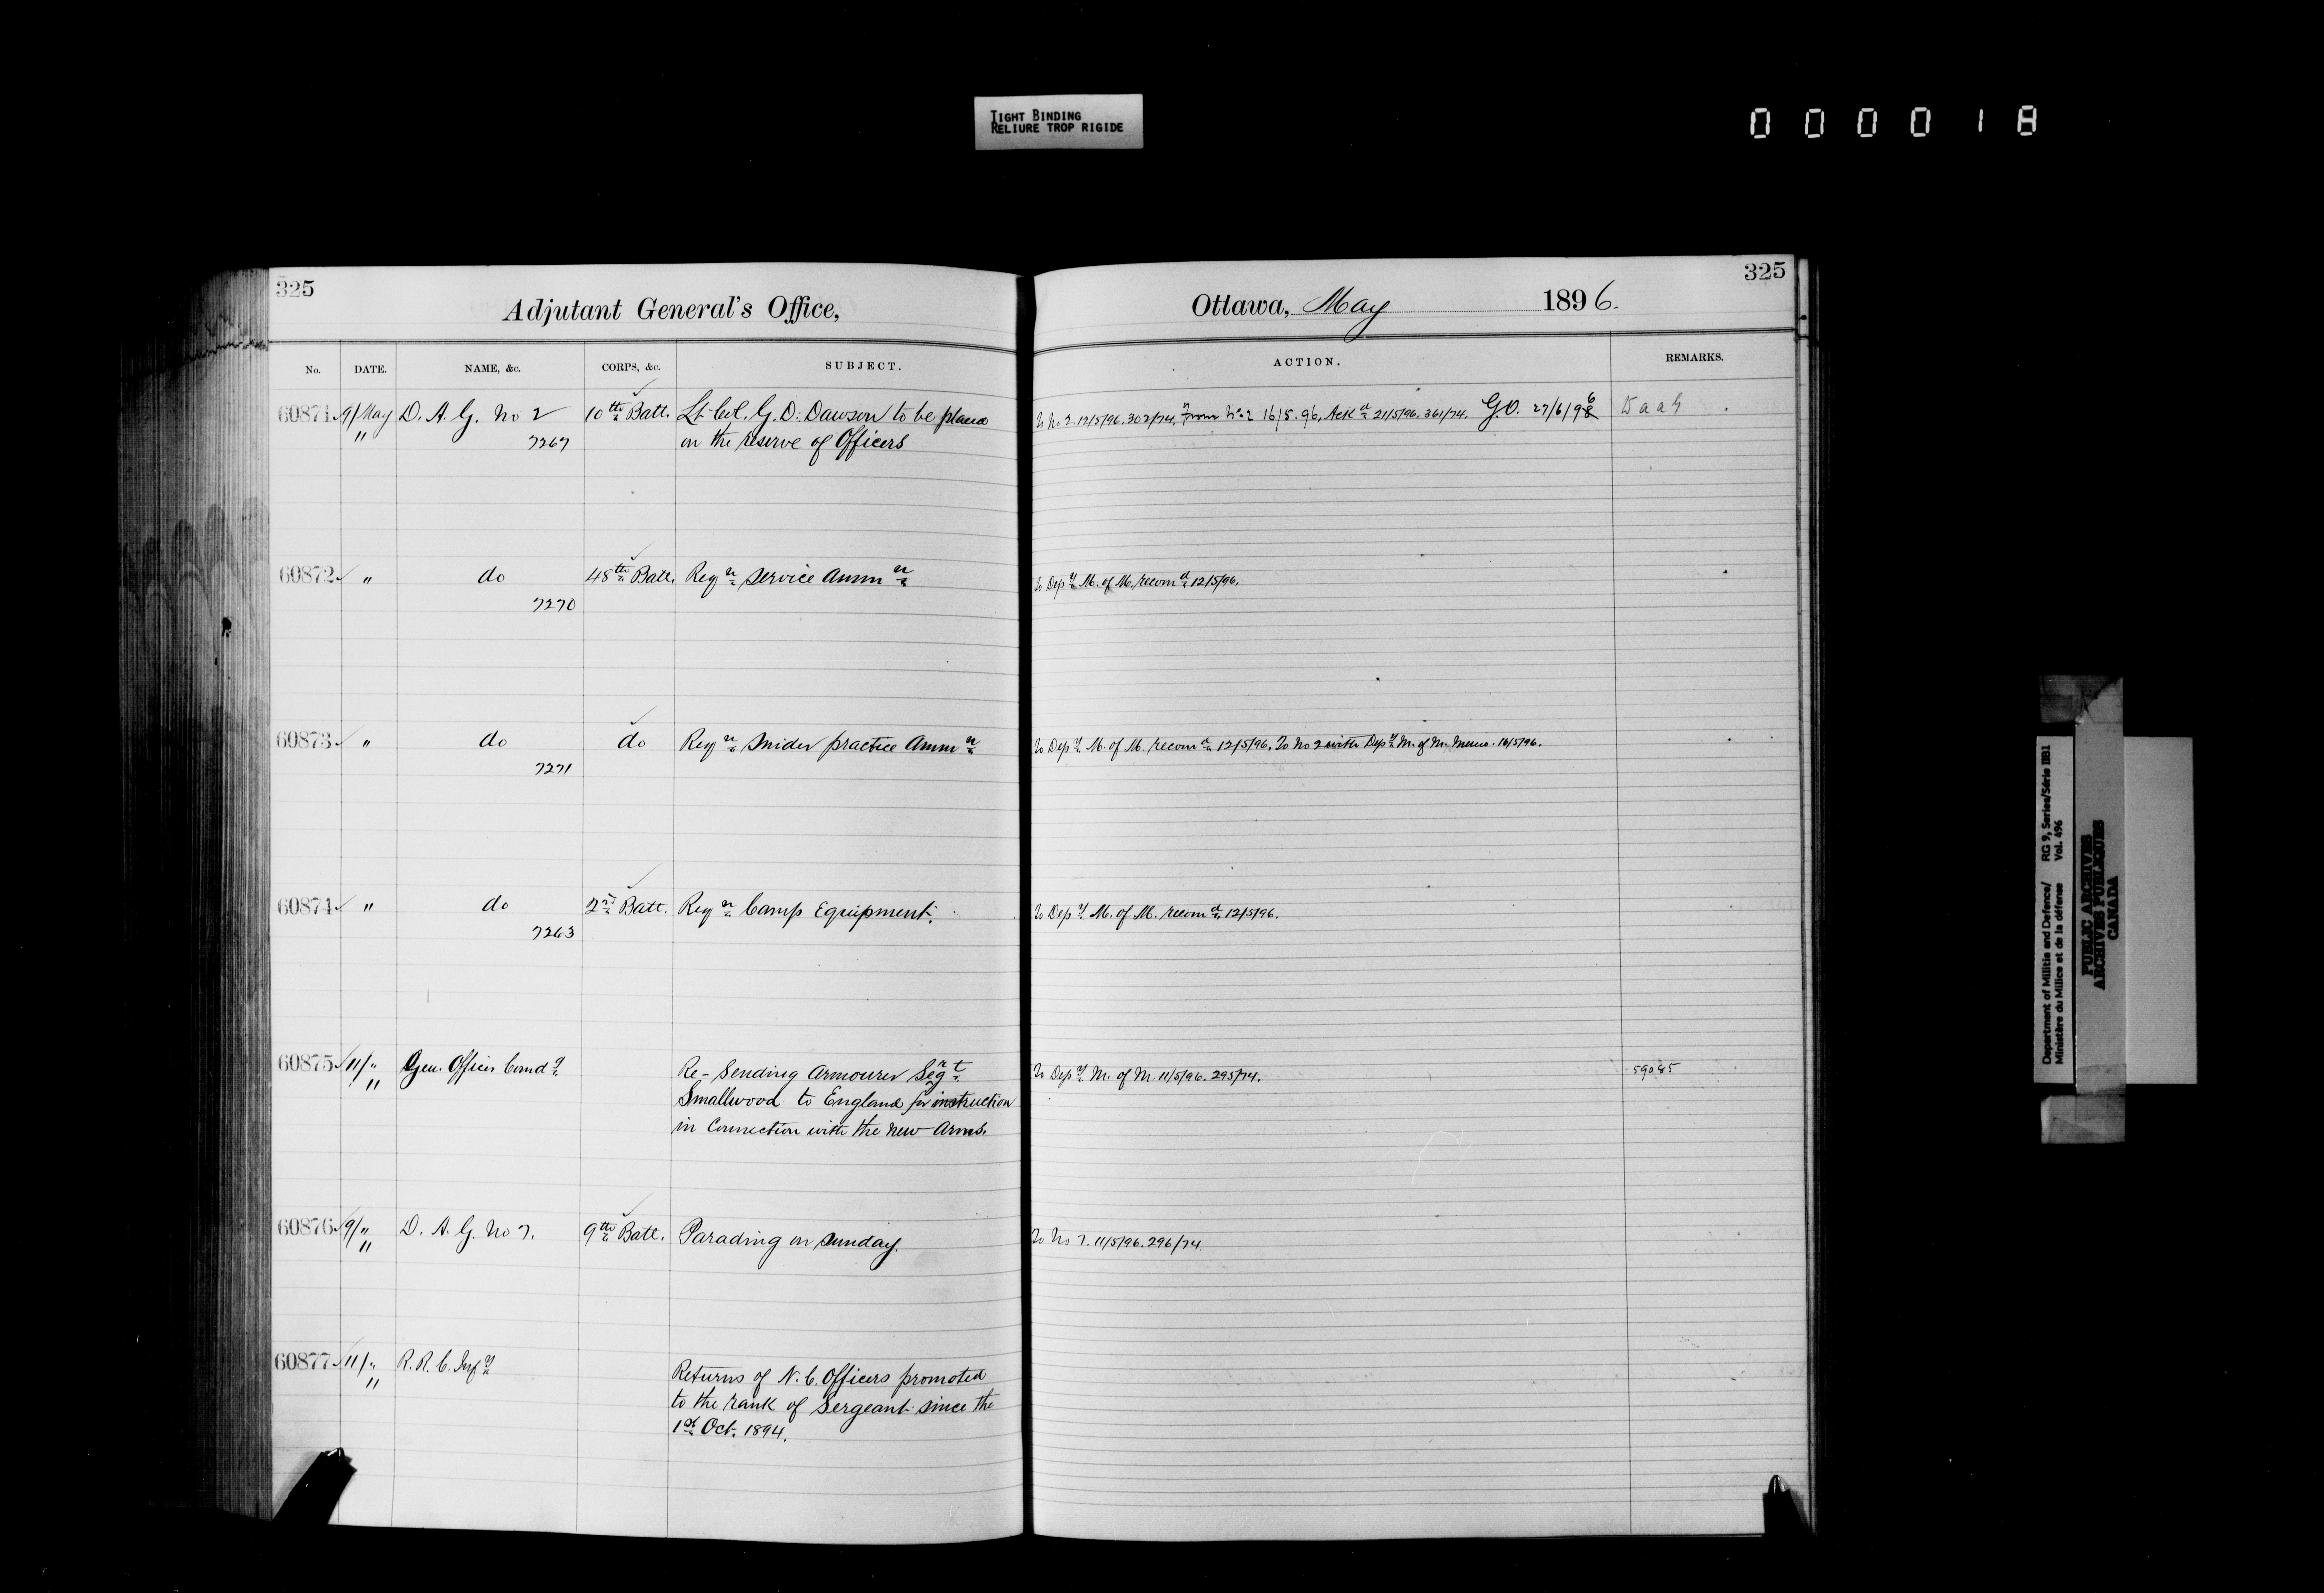 TIGHT BINDING
RELIURE TROP RIGIDE
000018
325
Adjutant General's Office,
No. DATE. NAME, &c. CORPS, &c. SUBJECT.
60871 9/May D. A. G. No 2 10th Batt. Lt-Col. G. D. Dawson to be placed
" 7267 on the reserve of Officers
60872 " do 48th Batt. Reqn Service Ammn
7270
60873 " do do Reqn Snider practice Ammn
7271
60874 " do 2nd Batt. Reqn Camp Equipment.
7263
60875 11/" Gen. Officer Comdg Re- Sending Armourer Sergt
" Smallwood to England for instruction
in Connection with the new Arms.
60876 9/" D. A. G. No 7. 9th Batt. Parading on Sunday.
"
60877 11/" R. R. C. Infy Returns of N. C. Officers promoted
" to the rank of Sergeant since the
1st Oct. 1894.
325
Ottawa, May 1896.
ACTION. REMARKS.
To No 2. 12/5/96. 302/74. From No 2 16/5.96, Ackd 21/5/96. 361/74. G.O. 27/6/96
To Depy M. of M. recomd 12/5/96.
To Depy M. of M. recomd 12/5/96. To No 2 with Depy M. of M. Memo. 16/5/96.
To Depy M. of M. recomd 12/5/96.
To Depy M. of M. 11/5/96. 295/74. 59085
To No 7. 11/5/96. 296/74.
Department of Militia and Defence/ RG 9, Series/Série IIB1
Ministère du Milice et de la défense Vol. 496
PUBLIC ARCHIVES
ARCHIVES PUBLIQUES
CANADA